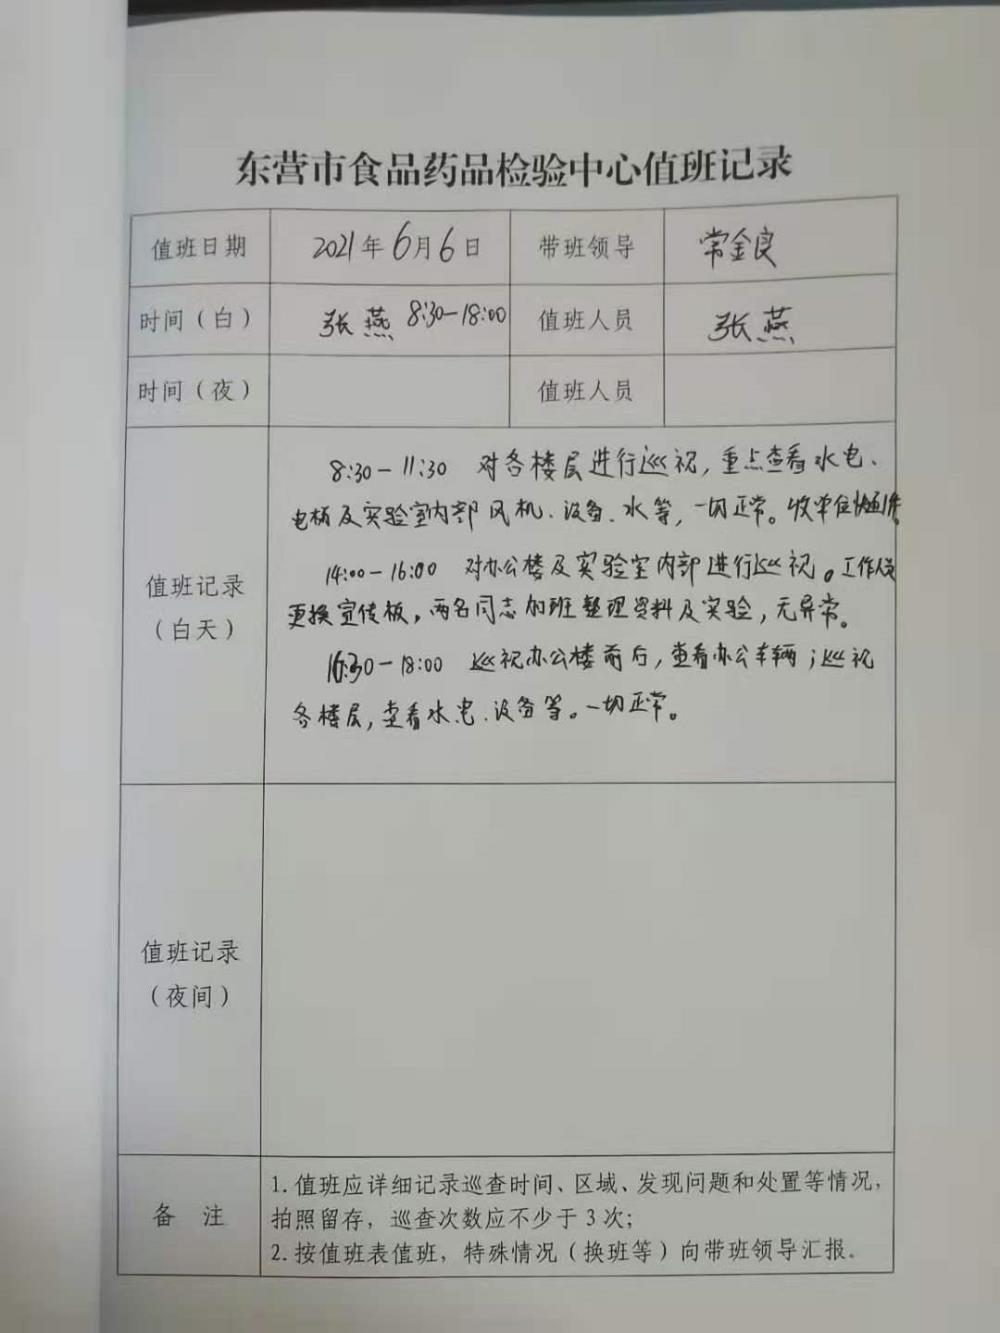 东营市食品药品检验中心值班记录
值班日期 2021年6月6日 带班领导 常金良
时间（白） 张燕 8:30-18:00 值班人员 张燕
时间（夜） 值班人员
8:30-11:30 对各楼层进行巡视，重点查看水电、
电梯及实验室内部风机、设备、水等，一切正常。收单位
值班记录
（白天）
14:00-16:00 对办公楼及实验室内部进行巡视。工作人员
更换宣传板，两名同志加班整理资料及实验，无异常。
16:30-18:00 巡视办公楼前后，查看办公车辆；巡视
各楼层，查看水电、设备等。一切正常。
值班记录
（夜间）
备 注
1.值班应详细记录巡查时间、区域、发现问题和处置等情况，
拍照留存，巡查次数应不少于3次；
2.按值班表值班，特殊情况（换班等）向带班领导汇报。